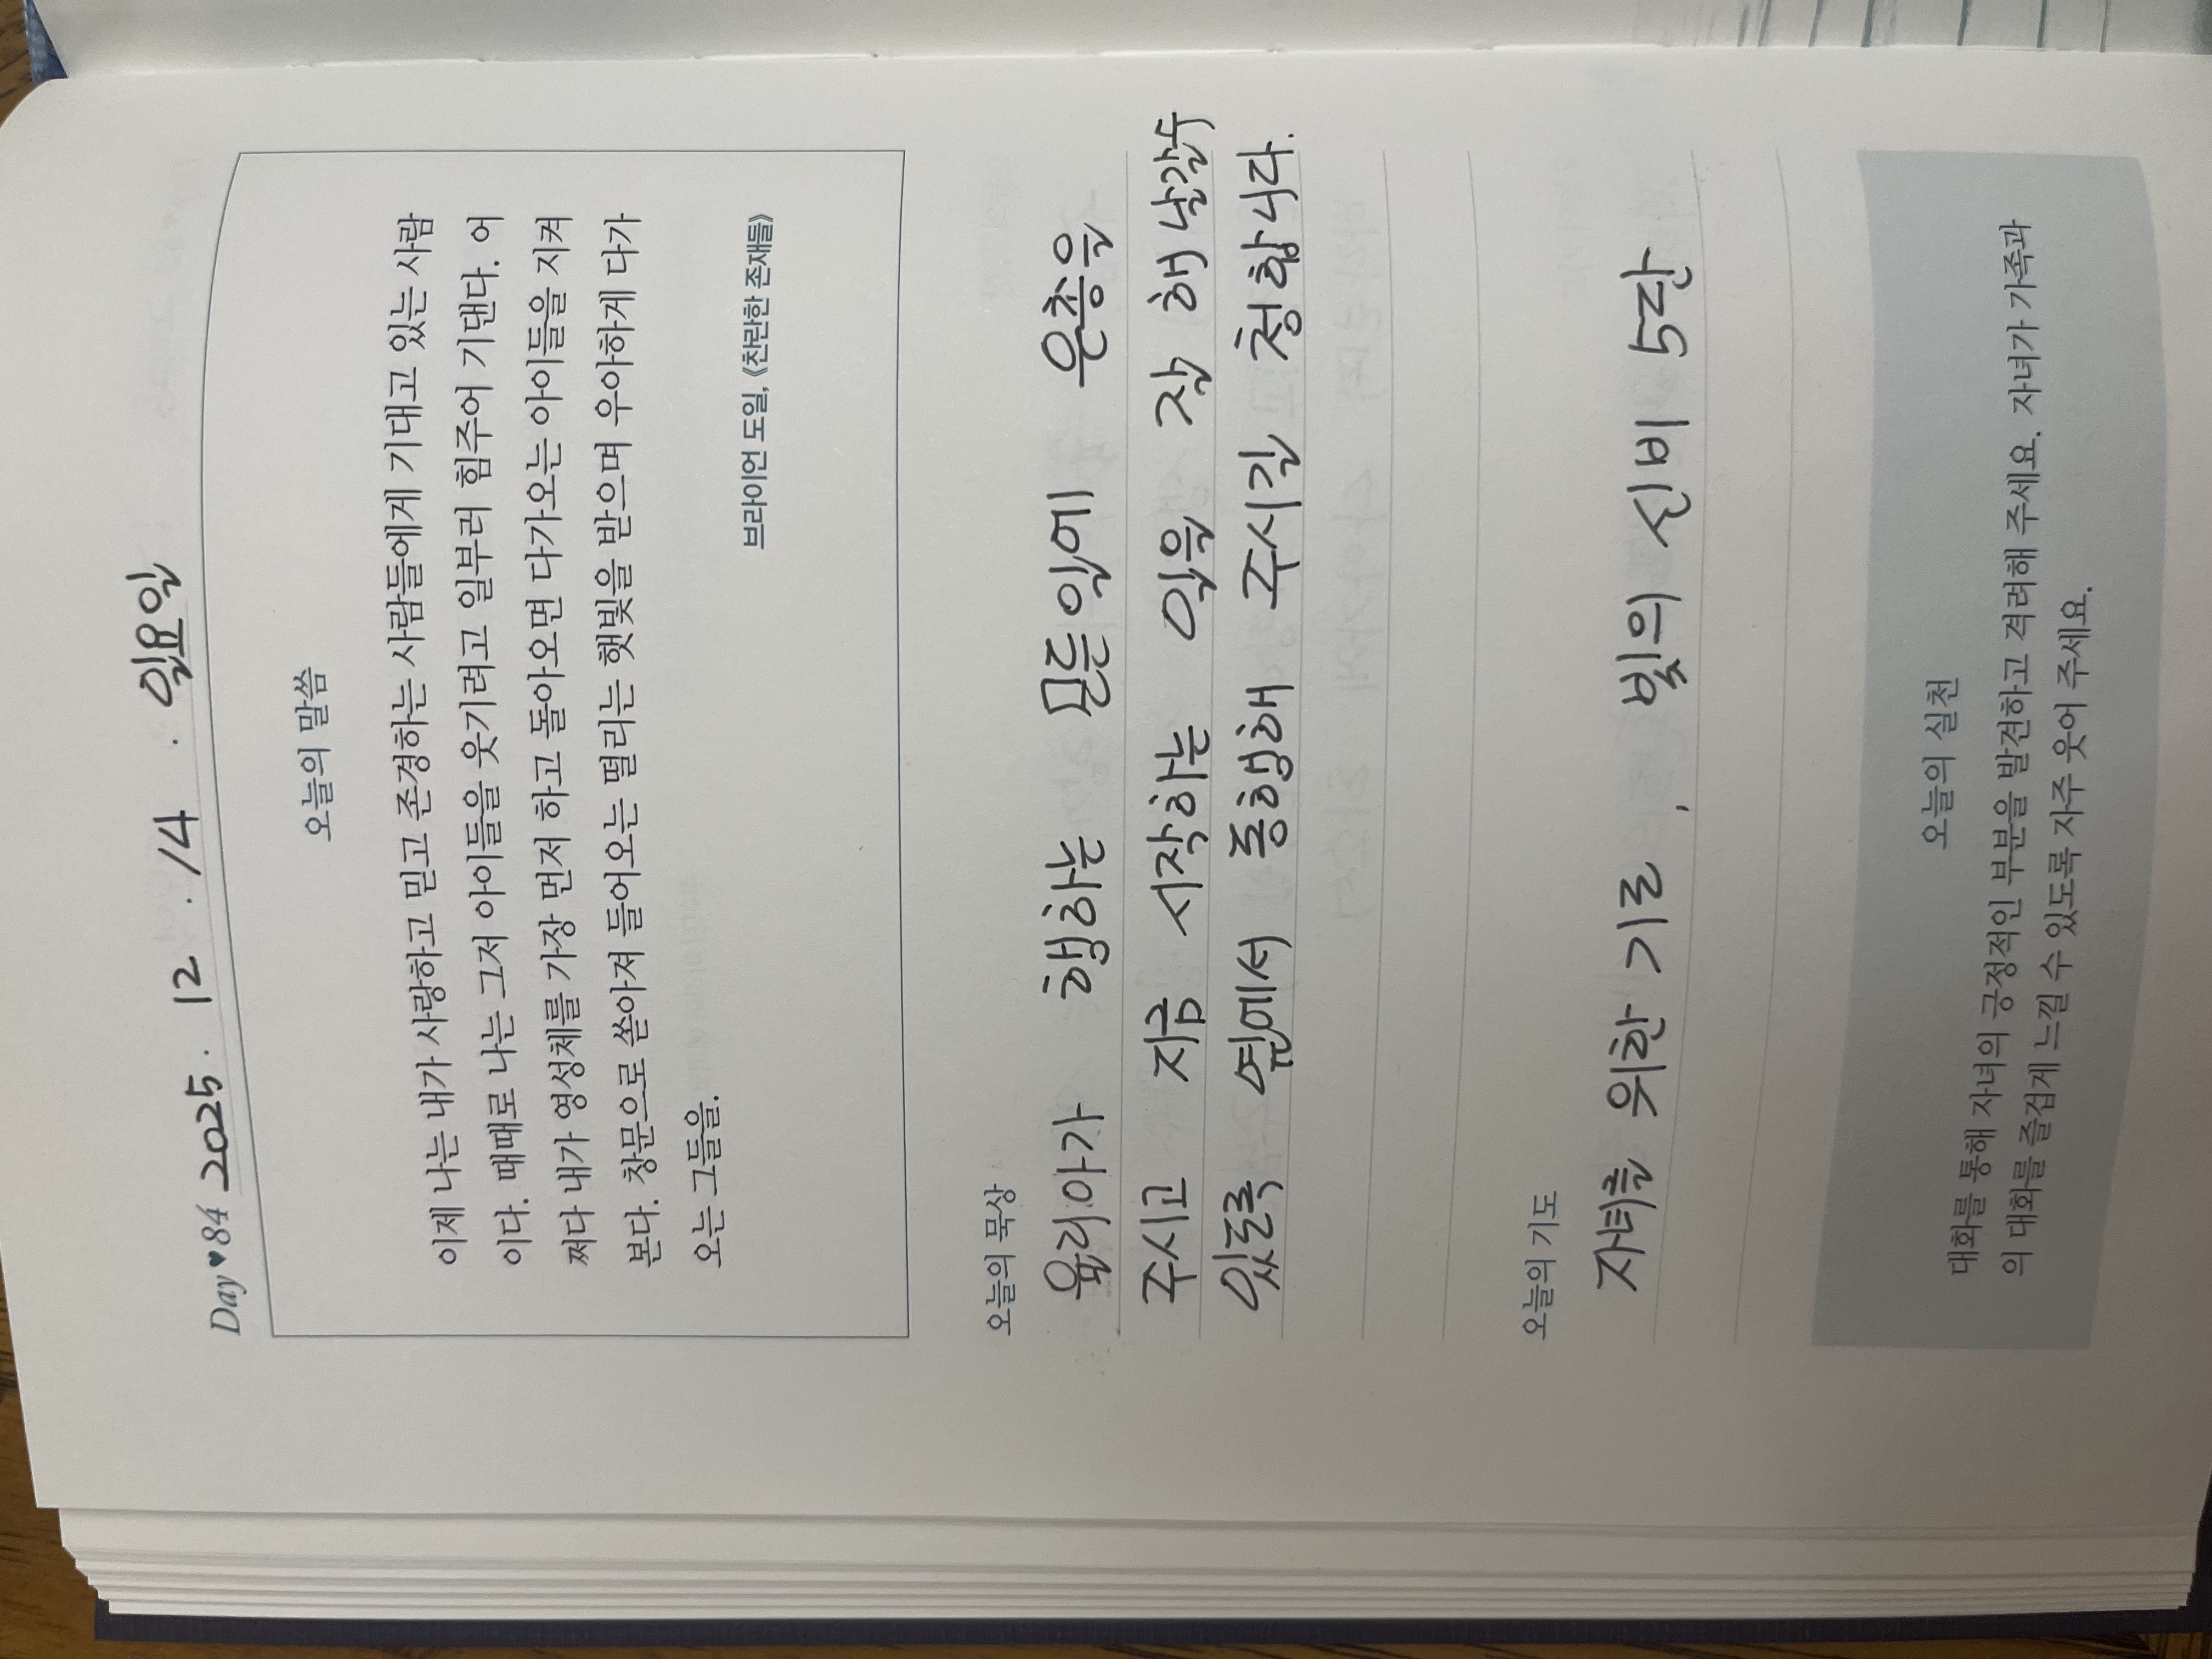 Day♥84 2025. 12. 14. 일요일
오늘의 말씀
이제 나는 내가 사랑하고 믿고 존경하는 사람들에게 기대고 있는 사람
이다. 때때로 나는 그저 아이들을 웃기려고 일부러 힘주어 기댄다. 어
쩌다 내가 영성체를 가장 먼저 하고 돌아오면 다가오는 아이들을 지켜
본다. 창문으로 쏟아져 들어오는 떨리는 햇빛을 받으며 우아하게 다가
오는 그들을.
브라이언 도일, 《찬란한 존재들》
오늘의 묵상
율리아가 행하는 모든일에 은총을
주시고 지금 시작하는 일을 잘 해 날갈수
있도록 옆에서 동행해 주시길 청합니다.
오늘의 기도
자녀를 위한 기도, 빛의 신비 5단
오늘의 실천
대화를 통해 자녀의 긍정적인 부분을 발견하고 격려해 주세요. 자녀가 가족과
의 대화를 즐겁게 느낄 수 있도록 자주 웃어 주세요.